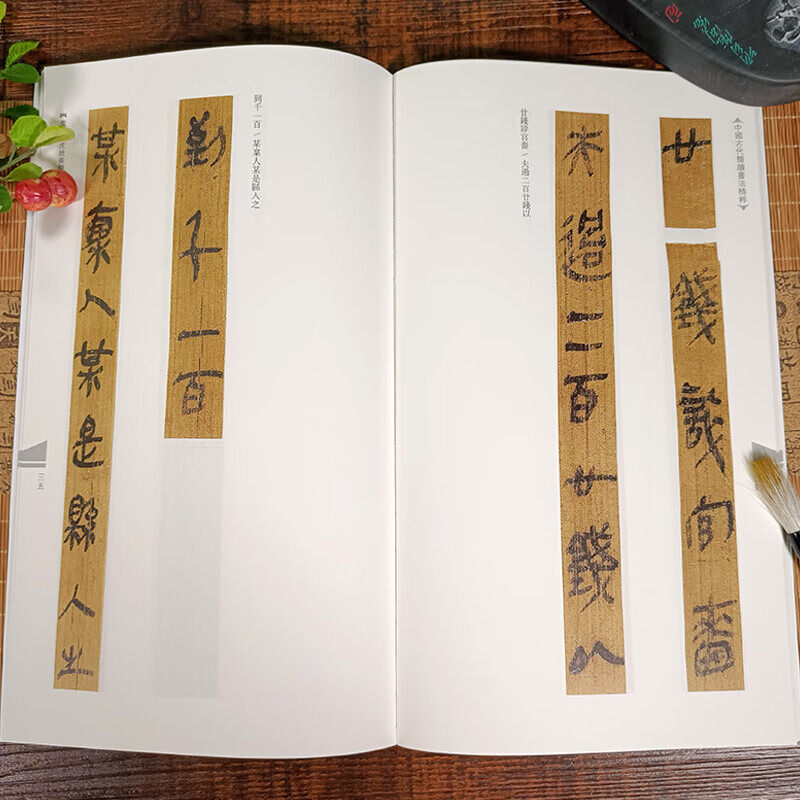 中國古代簡牘書法精粹
廿
錢誶官嗇
夫過二百廿錢以
廿錢誶官嗇／夫過二百廿錢以
到千一百／某稟人某是縣人之
到千一百
某稟人某是縣人之
三五